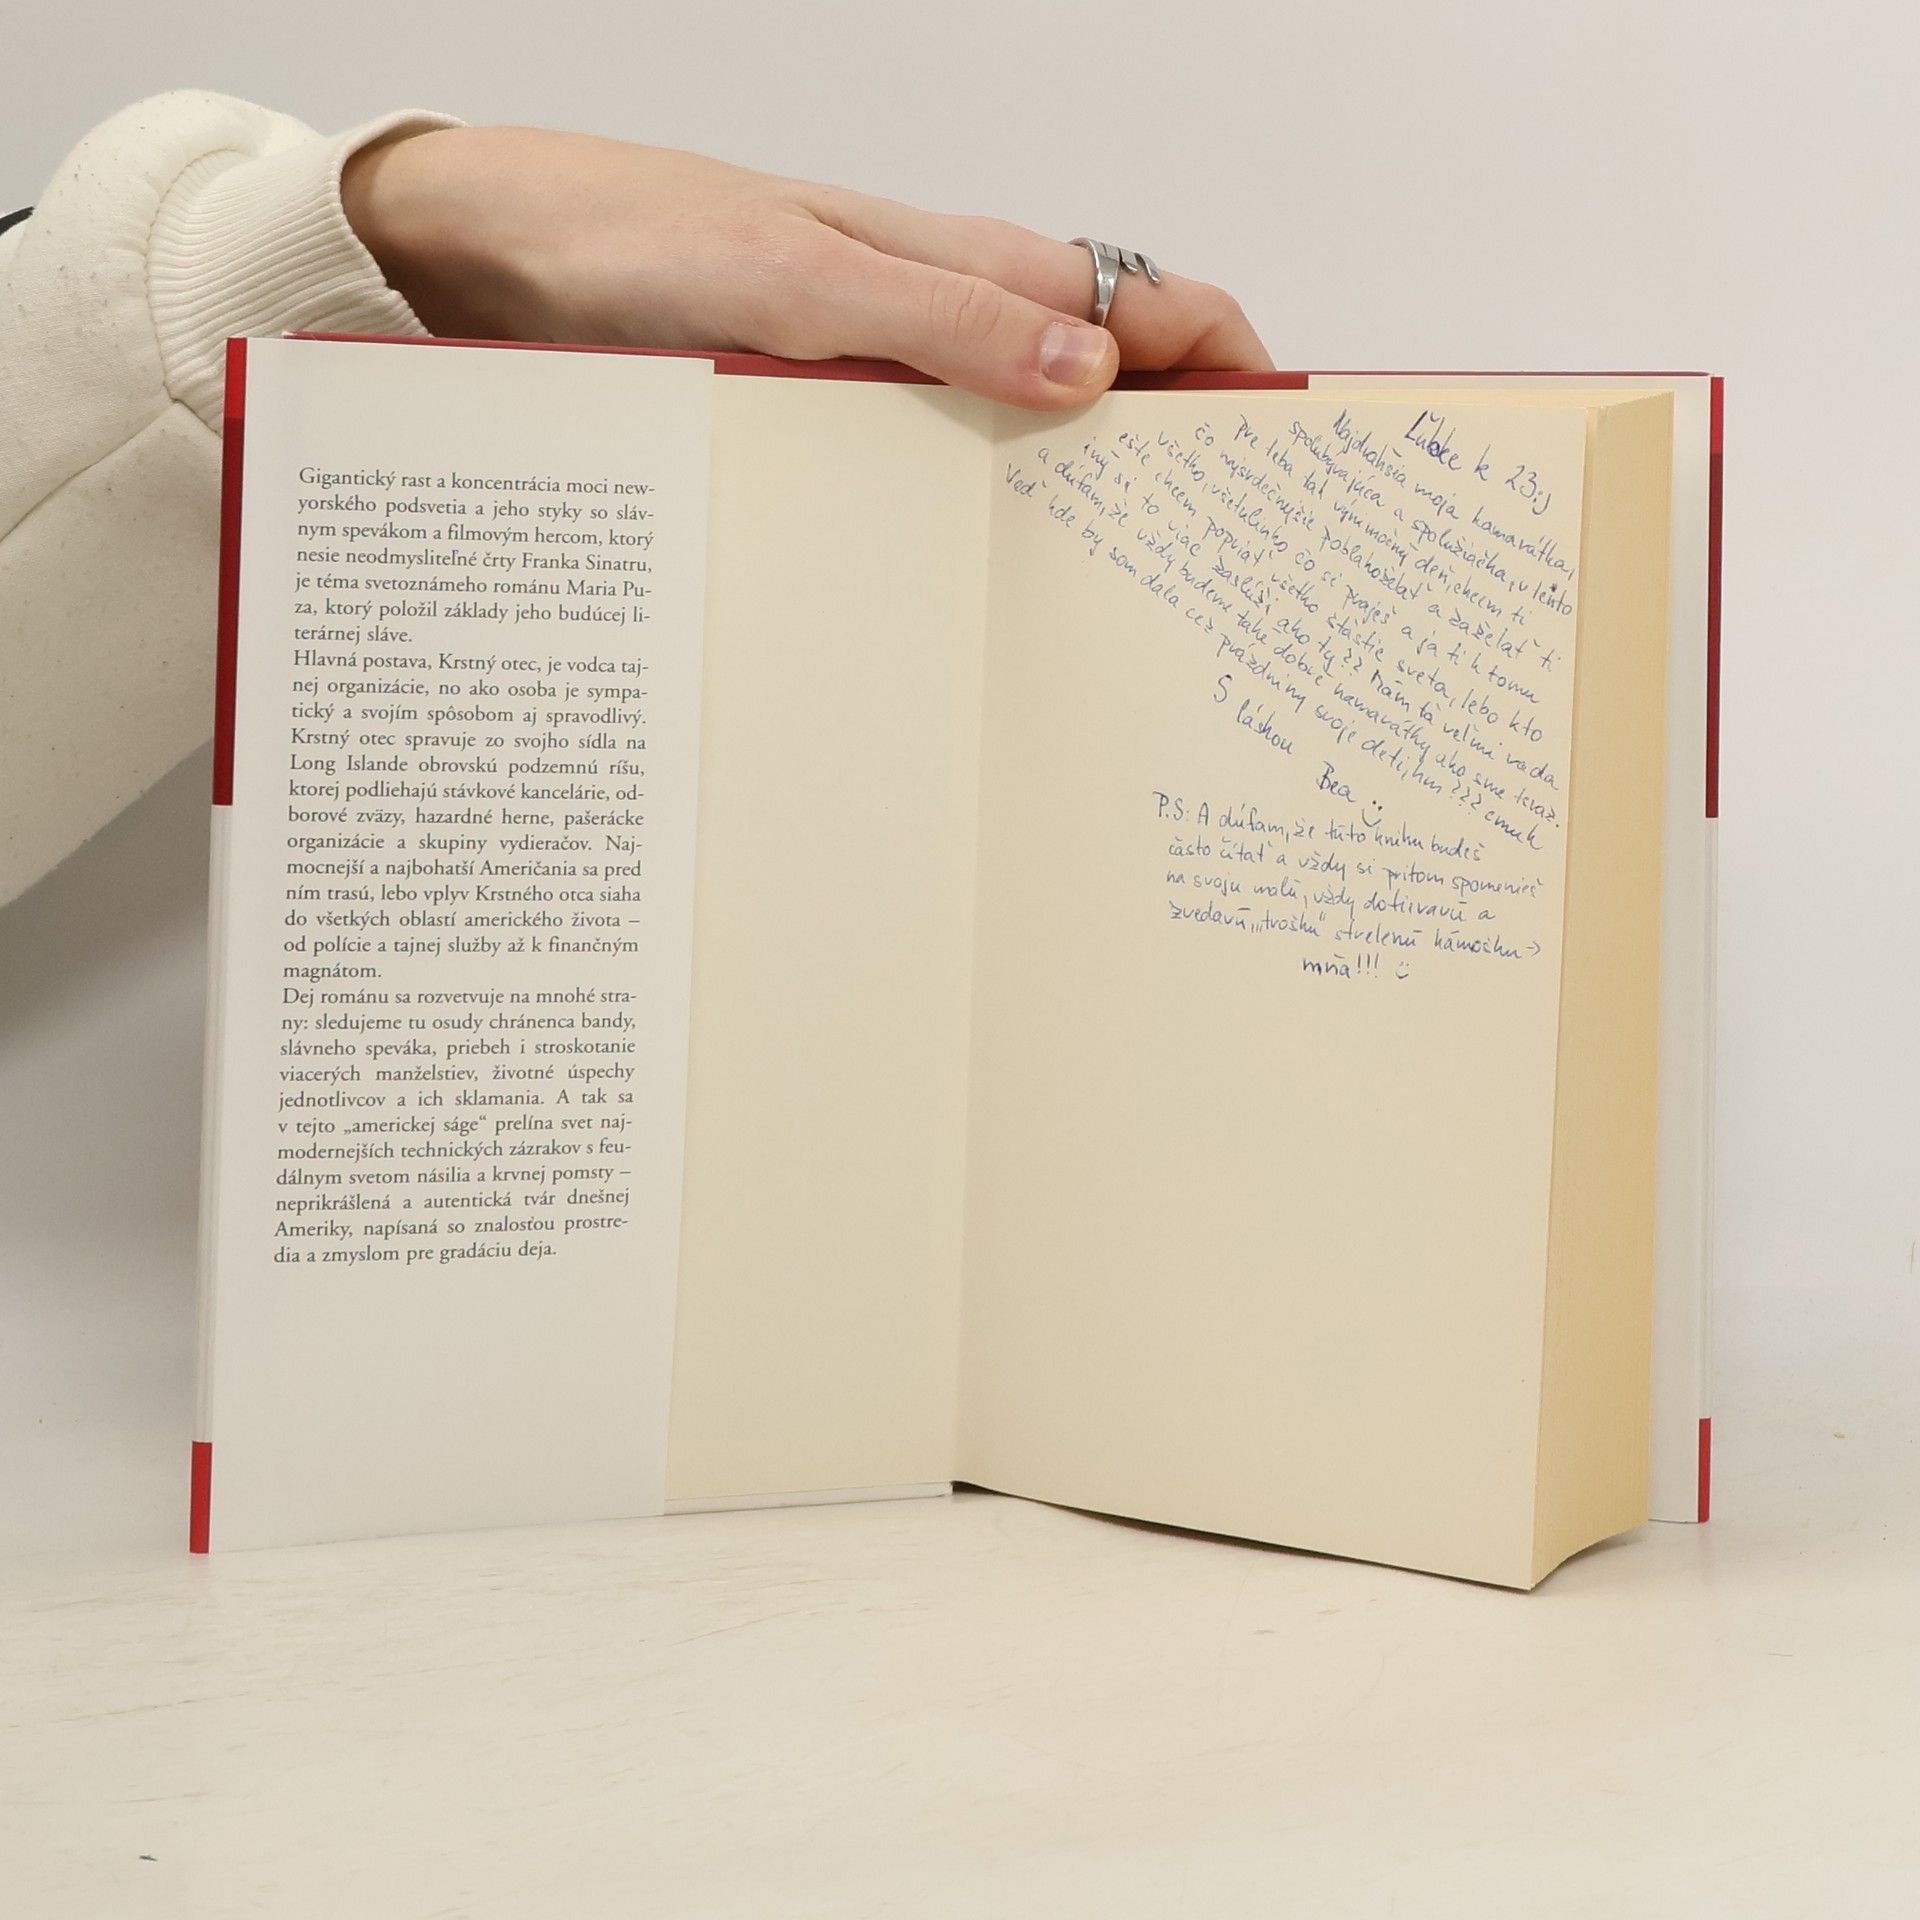 Gigantický rast a koncentrácia moci new-
yorského podsvetia a jeho styky so sláv-
nym spevákom a filmovým hercom, ktorý
nesie neodmysliteľné črty Franka Sinatru,
je téma svetoznámeho románu Maria Pu-
za, ktorý položil základy jeho budúcej li-
terárnej sláve.
Hlavná postava, Krstný otec, je vodca taj-
nej organizácie, no ako osoba je sympa-
tický a svojím spôsobom aj spravodlivý.
Krstný otec spravuje zo svojho sídla na
Long Islande obrovskú podzemnú ríšu,
ktorej podliehajú stávkové kancelárie, od-
borové zväzy, hazardné herne, pašerácke
organizácie a skupiny vydieračov. Naj-
mocnejší a najbohatší Američania sa pred
ním trasú, lebo vplyv Krstného otca siaha
do všetkých oblastí amerického života –
od polície a tajnej služby až k finančným
magnátom.
Dej románu sa rozvetvuje na mnohé stra-
ny: sledujeme tu osudy chránenca bandy,
slávneho speváka, priebeh i stroskotanie
viacerých manželstiev, životné úspechy
jednotlivcov a ich sklamania. A tak sa
v tejto „americkej ságe“ prelína svet naj-
modernejších technických zázrakov s feu-
dálnym svetom násilia a krvnej pomsty –
neprikrášlená a autentická tvár dnešnej
Ameriky, napísaná so znalosťou prostre-
dia a zmyslom pre gradáciu deja.
Ľubke k 23:)
Najdrahšia moja kamarátka,
spolubývajúca a spolužiačka, v tento
pre teba tak výnimočný deň, chcem ti
čo najsrdečnejšie poblahoželať a zaželať ti
všetko, všetulinko čo si praješ a ja ti k tomu
ešte chcem popriať všetko šťastie sveta, lebo kto
iný si to viac zaslúži ako ty?? Mám ťa veľmi rada
a dúfam, že vždy budeme také dobré kamarátky ako sme teraz.
Veď kde by som dala cez prázdniny svoje deti, hm??? cmuk
S láskou
Bea :)
P.S: A dúfam, že túto knihu budeš
často čítať a vždy si pritom spomenieš
na svoju malú, vždy dotieravú a
zvedavú, „trošku“ strelenú kámošku →
mňa!!! :)